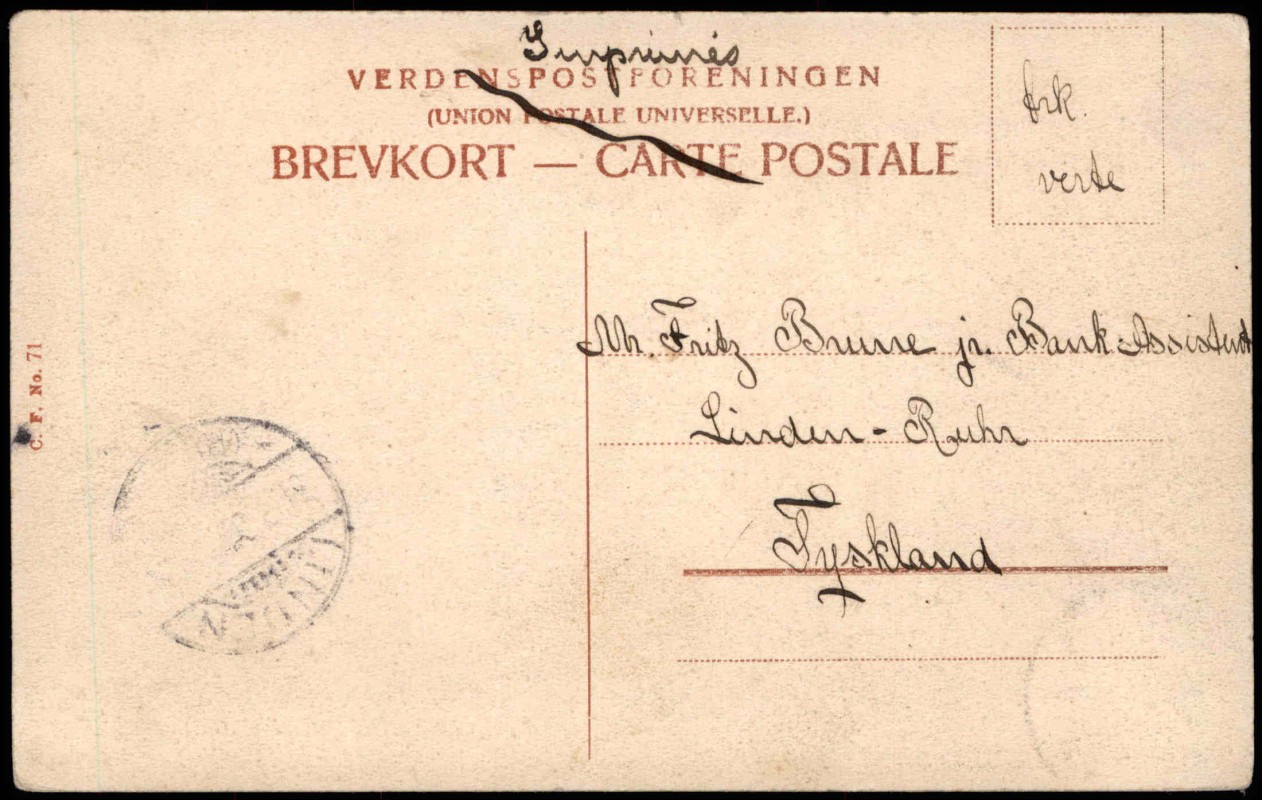 Imprimés
VERDENSPOSTFORENINGEN
(UNION POSTALE UNIVERSELLE.)
BREVKORT — CARTE POSTALE
frk.
verte
C. F. No. 71
Mr. Fritz Brune jr. Bank-Assistent
Linden - Ruhr
Tyskland